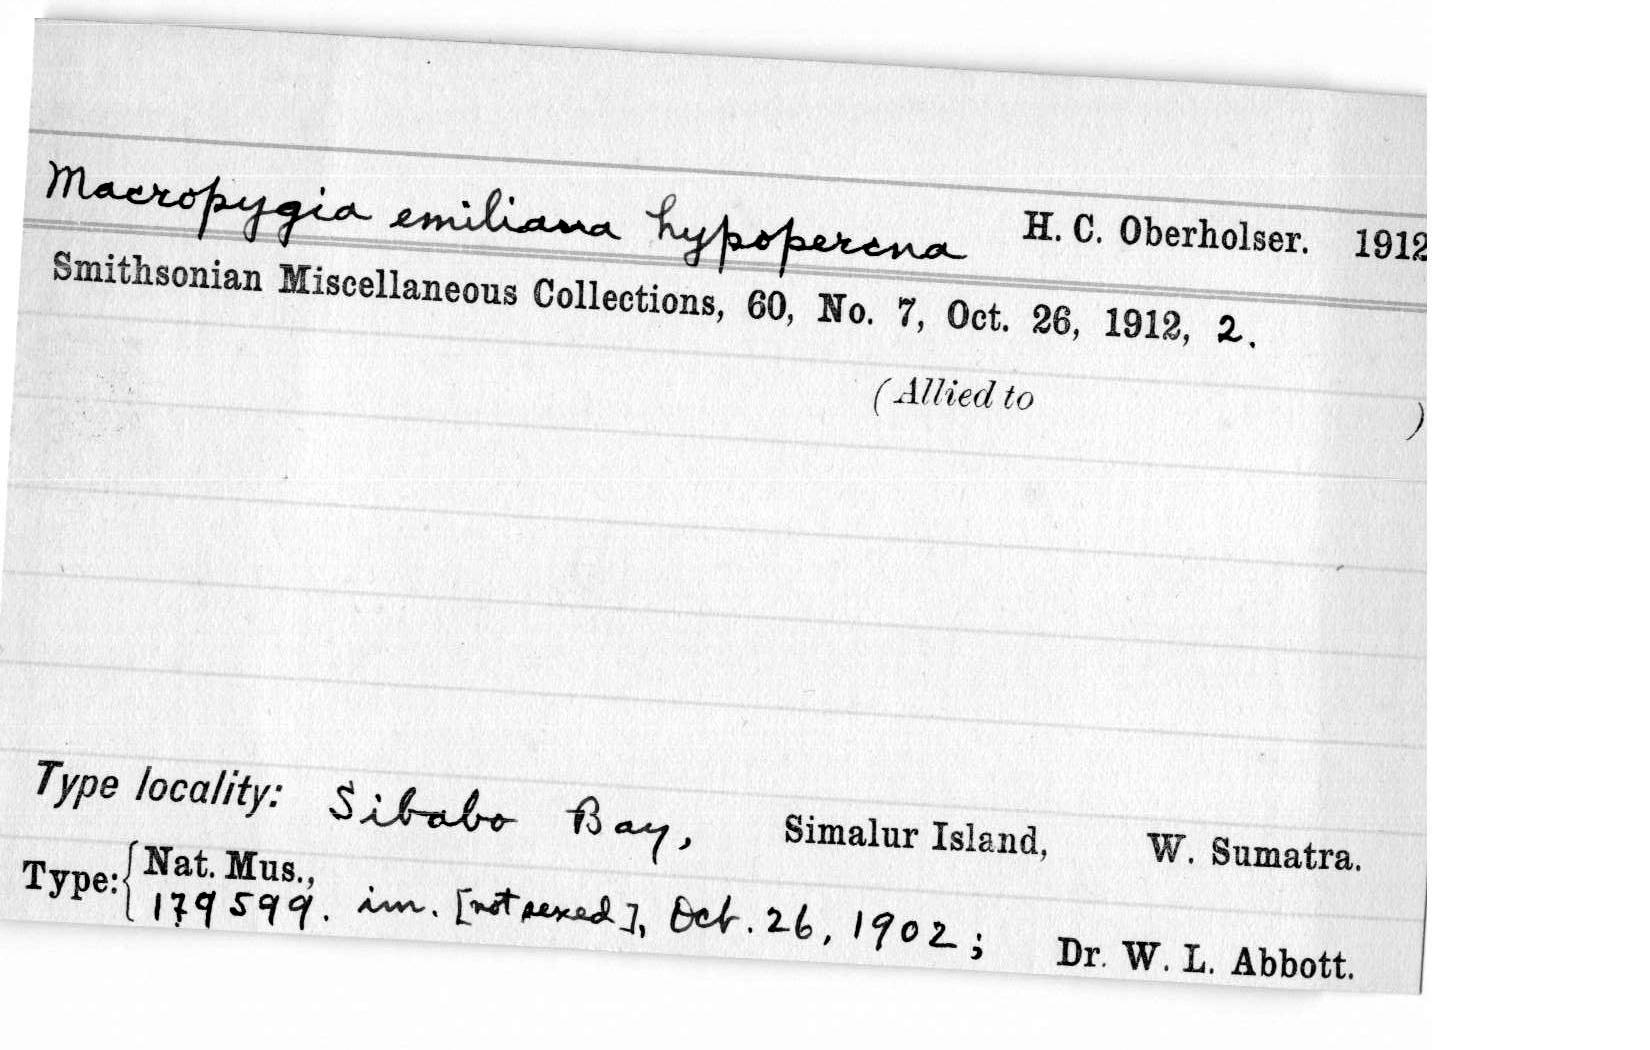 Macropygia emiliana hypopercna H. C. Oberholser. 1912
Smithsonian Miscellaneous Collections, 60, No. 7, Oct. 26, 1912, 2.
(Allied to )
Type locality: Sibabo Bay, Simalur Island, W. Sumatra.
Type: { Nat. Mus.,
179599. im. [not sexed], Oct. 26, 1902; Dr. W. L. Abbott.